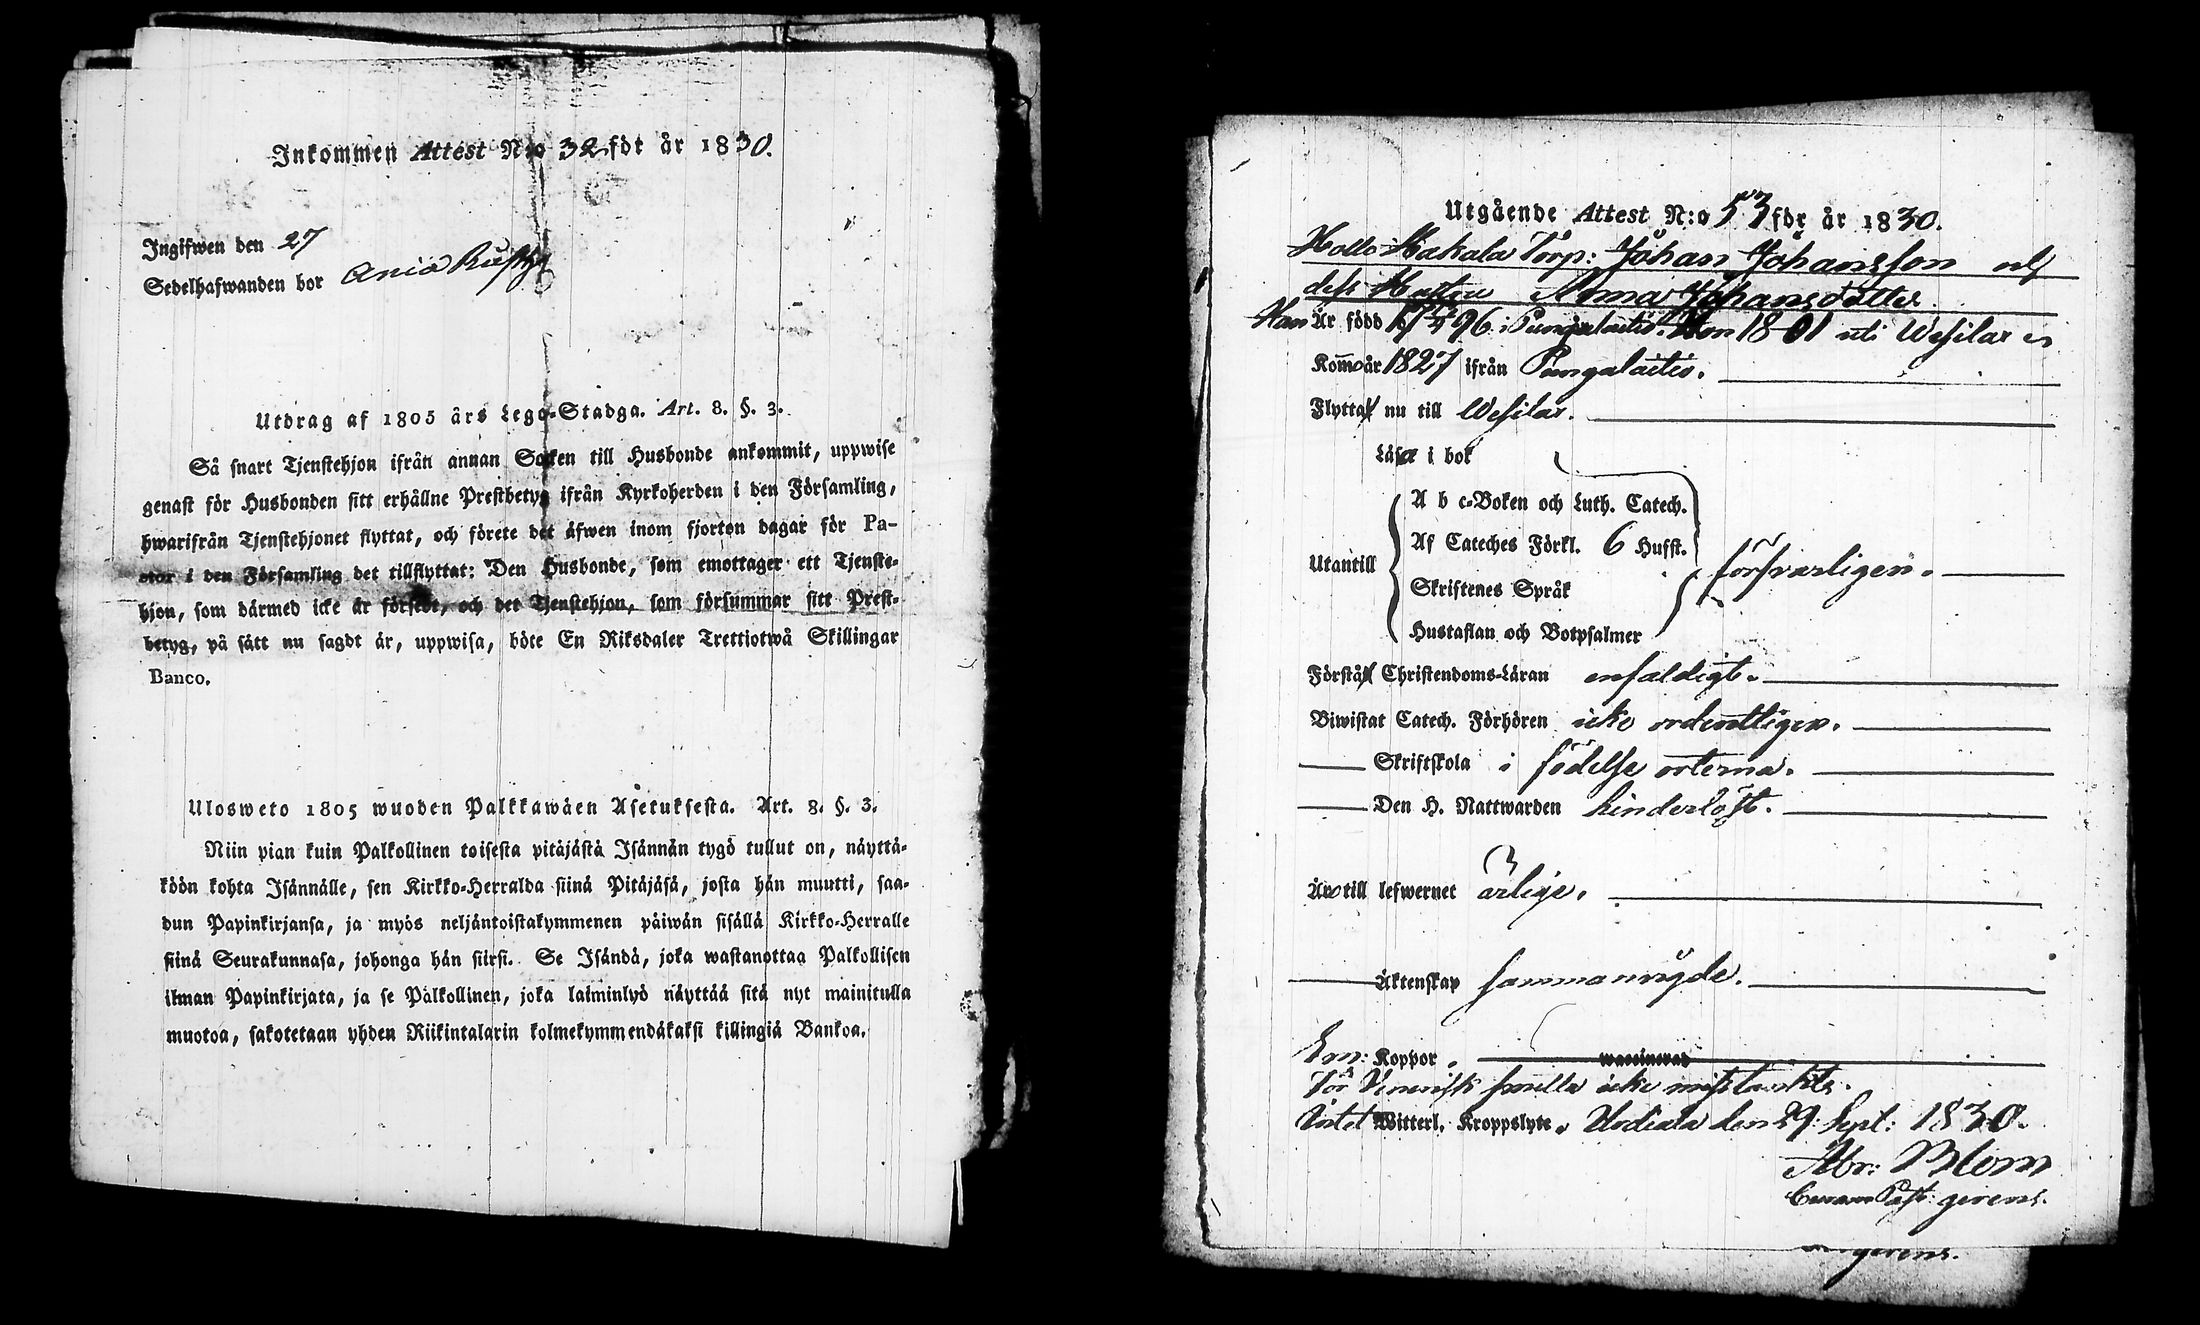 Inkommen Attest N:o 32 för år 1830.
Ingifwen den 27
Sedelhafwanden bor
Utdrag af 1805 års Lego-Stadga. Art. 8. §. 3.
Så snart Tjenstehjon ifrån annan Socken till Husbonde ankommit, uppwise
genast för Husbonden sitt erhållne Prestbetyg ifrån Kyrkoherden i den Församling,
hwarifrån Tjenstehjonet flyttat, och förete det äfwen inom fjorton dagar för Pa-
stor i den Församling det tillflyttat: Den Husbonde, som emottager ett Tjenste-
hjon, som därmed icke är försedt, och det Tjenstehjon, som försummar sitt Prest-
betyg, på sätt nu sagdt är, uppwisa, böte En Riksdaler Trettiotwå Skillingar
Banco.
Ulosweto 1805 wuoden Palkkawäen Asetuksesta. Art. 8. §. 3.
Niin pian kuin Palkollinen toisesta pitäjästä Isännän tygö tullut on, näyttä-
köön kohta Isännälle, sen Kirkko-Herralda siinä Pitäjäsä, josta hän muutti, saa-
dun Papinkirjansa, ja myös neljäntoistakymmenen päiwän sisällä Kirkko-Herralle
siinä Seurakunnasa, johonga hän siirsi. Se Isändä, joka wastanottaa Palkollisen
ilman Papinkirjata, ja se Palkollinen, joka laiminlyö näyttää sitä nyt mainitulla
muotoa, sakotetaan yhden Riikintalarin kolmekymmendäkaksi killingiä Bankoa.
Utgående Attest N:o 53 för år 1830.
Hakala Torp: Johan Johansson och
dess Hustru Anna Johansdotter
Han Är född 17 96 i Pungalaitio. Hon 1801 uti Wesilax
Kommo år 1827 ifrån Pungalaitio.
Flytta nu till Wesilax.
Läsa i bok
A b c-Boken och Luth. Catech.
Af Cateches Förkl. 6 Hufst.
Utantill
Skriftenes Språk
försvarligen.
Hustaflan och Botpsalmer
Förstå Christendoms-Läran enfaldigt.
Biwistat Catech. Förhören icke ordentligen.
Skriftskola i födelse orterna.
Den H. Nattwarden hinderlöst.
Äro till lefwernet ärlige.
Äktenskap sammanvigde.
Koppor, waccinerad
För Venerisk smitta icke misstänkte.
Witterl. Kroppslyte, Urdiala den 29 Sept: 1830.
Abr: Blom
Past: gerens.
gerens.